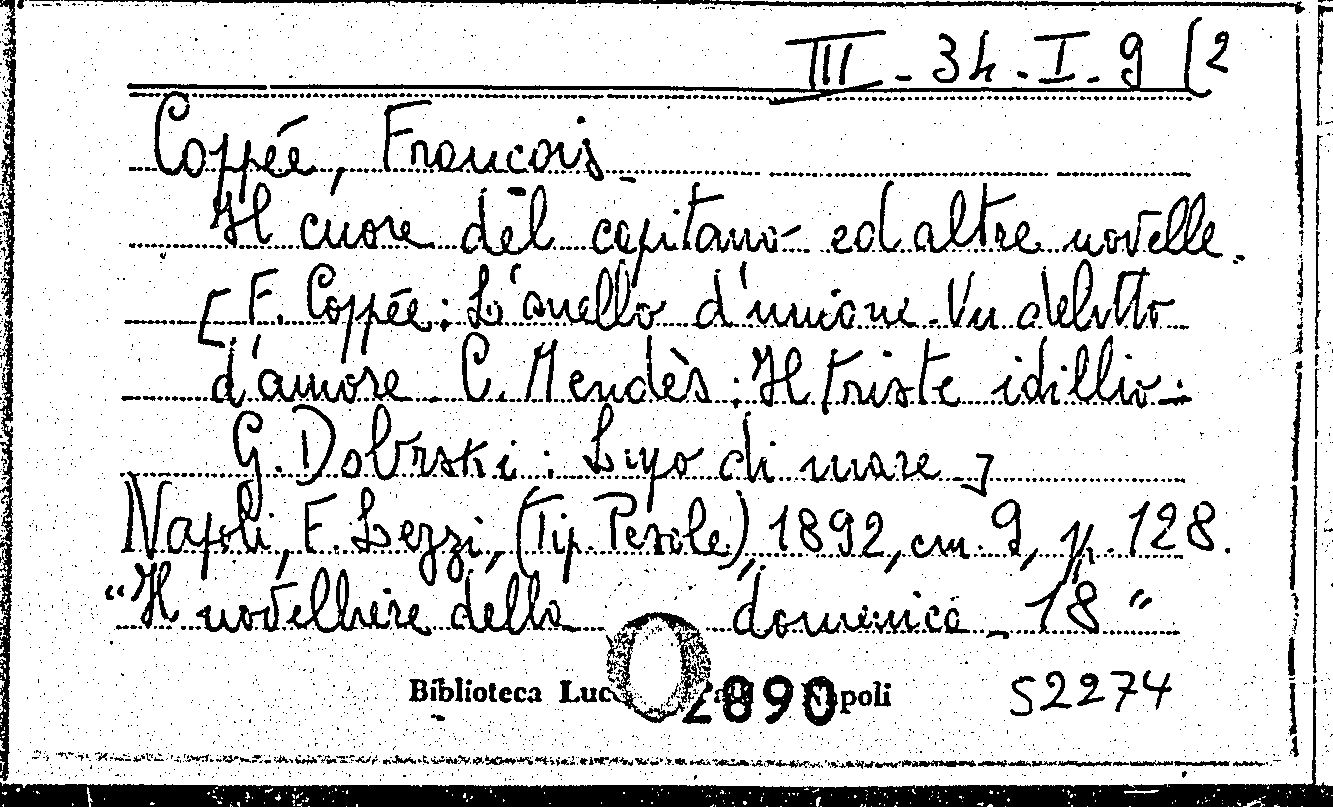 III - 34 - I - 9 (2
Coppée, François
Il cuore del capitano ed altre novelle.
[F. Coppée: L'anello d'unione. Un delitto
d'amore - C. Mendès: Il triste idillio -
G. Dobrski: Lupo di mare]
Napoli, F. Lezzi, (Tip. Pesole), 1892, cm. 9, p. 128.
"Il novelliere della domenica - 18"
Biblioteca Napoli
2890
52274